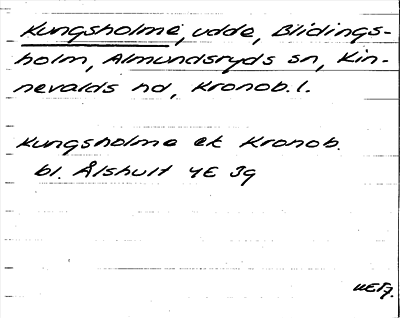 Kungsholme, udde, Blidings-
holm, Almundsryds sn, Kin-
nevalds hd, Kronob. l.
Kungsholme ek Kronob.
bl. Ålshult 4E 3g